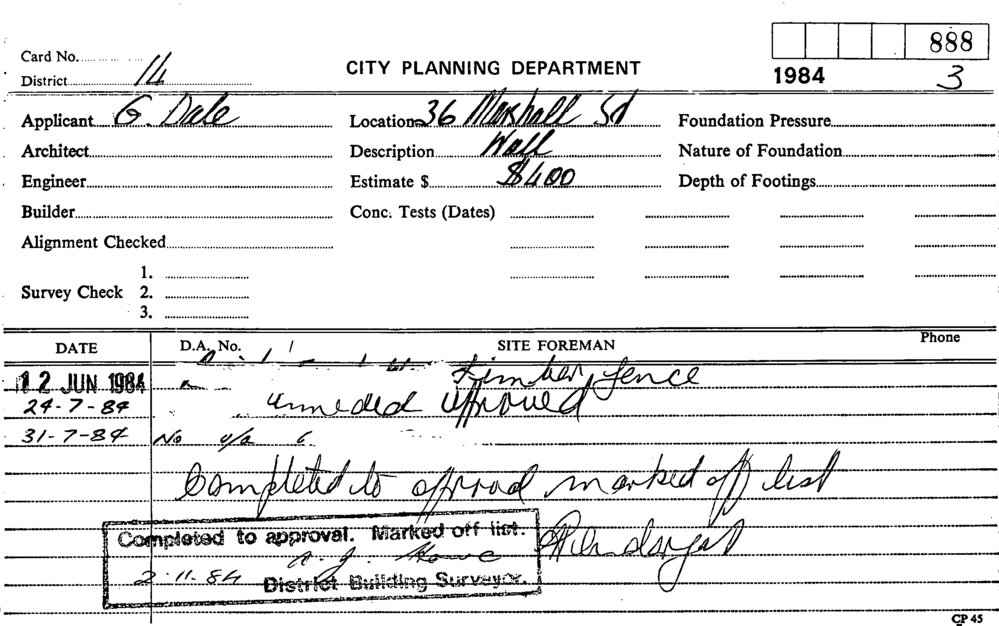 888
Card No.
CITY PLANNING DEPARTMENT
District 14
1984 3
Applicant G. Dale Location 36 Marshall Sd Foundation Pressure
Architect Description Wall Nature of Foundation
Engineer Estimate $ $400 Depth of Footings
Builder Conc. Tests (Dates)
Alignment Checked
1.
Survey Check 2.
3.
DATE D.A. No. SITE FOREMAN Phone
12 JUN 1984 Timber fence
24-7-84 approved
31-7-84 No
Completed to approval marked off list
Completed to approval. Marked off list.
2.11.84 District Building Surveyor.
CP 45